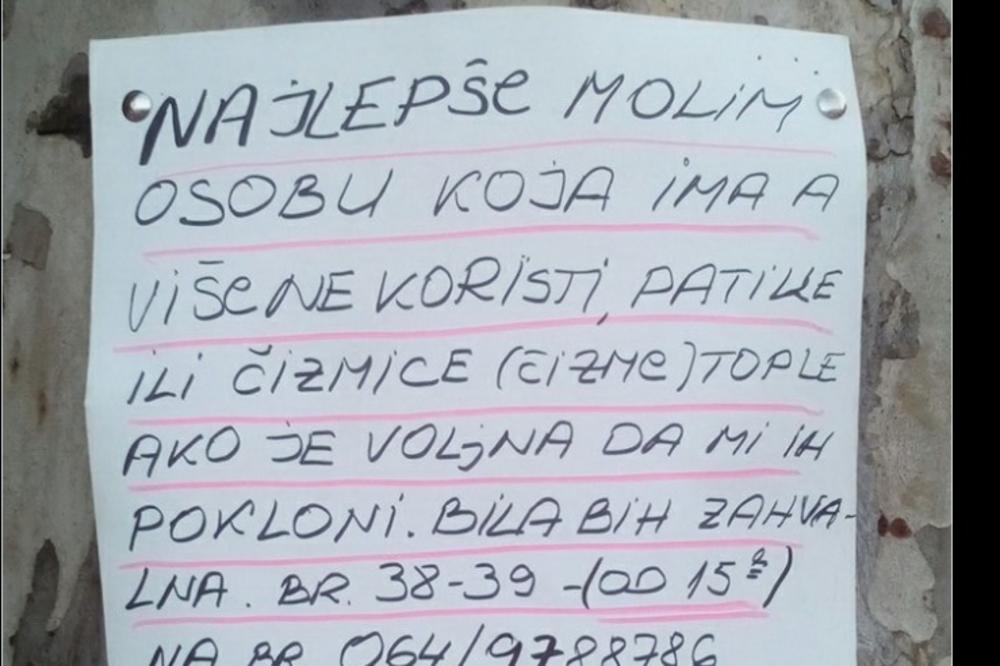 NAJLEPŠE MOLIM
OSOBU KOJA IMA A
VIŠE NE KORISTI, PATIKE
ILI ČIZMICE (ČIZME) TOPLE
AKO JE VOLJNA DA MI IH
POKLONI. BILA BIH ZAHVA-
LNA. BR. 38-39 - (OD 15 h)
NA BR 064/9788786